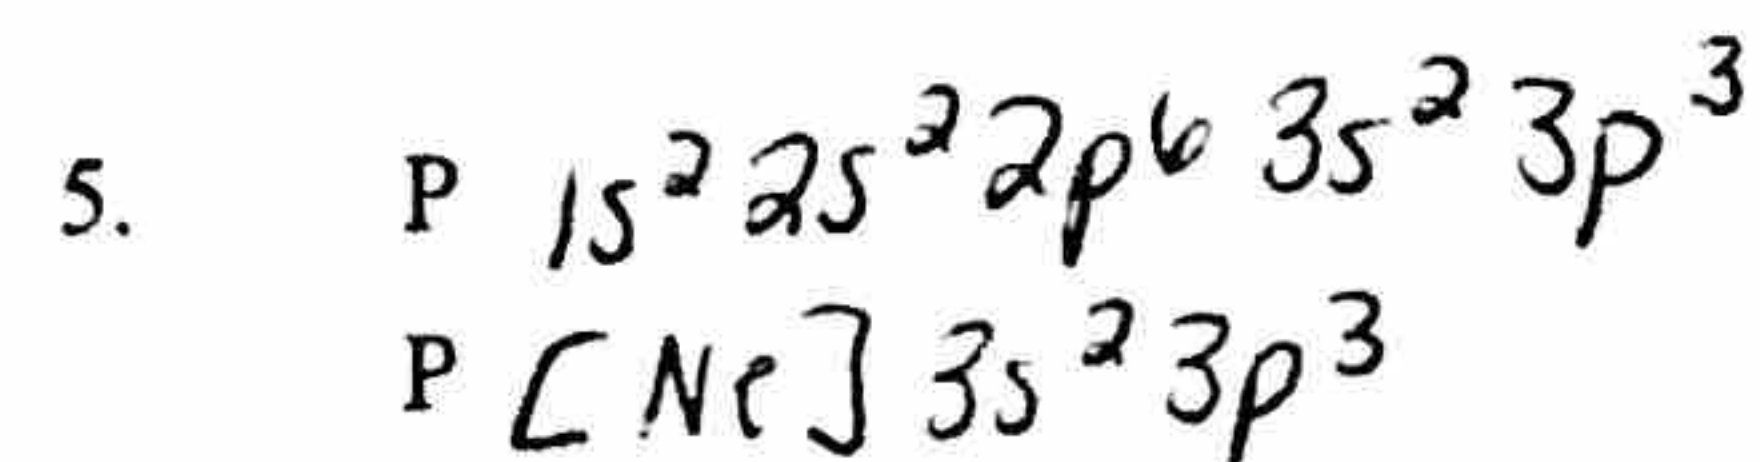 5. P 1s² 2s² 2p⁶ 3s² 3p³
P [Ne] 3s² 3p³